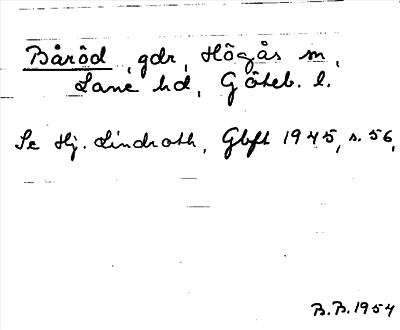 Båröd, gdr, Högås sn,
Lane hd, Göteb. l.
Se Hj. Lindroth, Gbft 1945, s. 56,
B.B. 1954